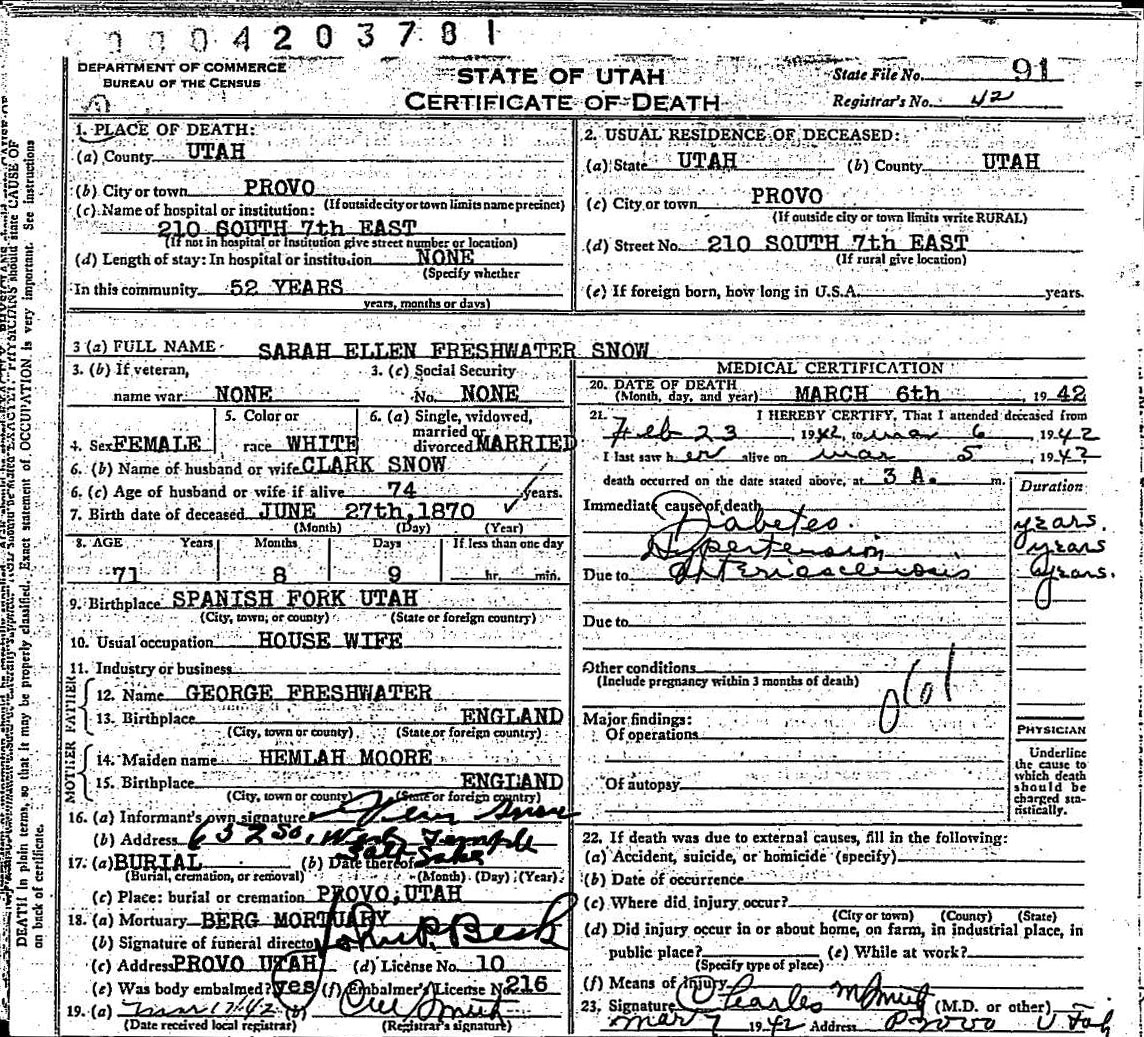 0004203781
DEPARTMENT OF COMMERCE
BUREAU OF THE CENSUS
STATE OF UTAH
CERTIFICATE OF DEATH
State File No. 91
Registrar's No. 42
1. PLACE OF DEATH:
(a) County UTAH
(b) City or town PROVO
(If outside city or town limits name precinct)
(c) Name of hospital or institution:
210 SOUTH 7th EAST
(If not in hospital or institution give street number or location)
(d) Length of stay: In hospital or institution NONE
(Specify whether
In this community 52 YEARS
years, months or days)
2. USUAL RESIDENCE OF DECEASED:
(a) State UTAH (b) County UTAH
(c) City or town PROVO
(If outside city or town limits write RURAL)
(d) Street No. 210 SOUTH 7th EAST
(If rural give location)
(e) If foreign born, how long in U.S.A. years.
3 (a) FULL NAME SARAH ELLEN FRESHWATER SNOW
3. (b) If veteran, 3. (c) Social Security
name war NONE No. NONE
4. Sex FEMALE 5. Color or race WHITE 6. (a) Single, widowed, married or divorced MARRIED
6. (b) Name of husband or wife CLARK SNOW
6. (c) Age of husband or wife if alive 74 years.
7. Birth date of deceased JUNE 27th, 1870
(Month) (Day) (Year)
8. AGE Years Months Days If less than one day
71 8 9 hr. min.
9. Birthplace SPANISH FORK UTAH
(City, town, or county) (State or foreign country)
10. Usual occupation HOUSE WIFE
11. Industry or business
FATHER
12. Name GEORGE FRESHWATER
13. Birthplace ENGLAND
(City, town or county) (State or foreign country)
MOTHER
14. Maiden name HEMLAH MOORE
15. Birthplace ENGLAND
(City, town or county) (State or foreign country)
16. (a) Informant's own signature Vern Snow
(b) Address 632 So. West Temple
Salt Lake
17. (a) BURIAL (b) Date thereof
(Burial, cremation, or removal) (Month) (Day) (Year)
(c) Place: burial or cremation PROVO, UTAH
18. (a) Mortuary BERG MORTUARY
(b) Signature of funeral director
(c) Address PROVO UTAH (d) License No. 10
(e) Was body embalmed? yes (f) Embalmer's License No. 216
19. (a) (b)
(Date received local registrar) (Registrar's signature)
MEDICAL CERTIFICATION
20. DATE OF DEATH
(Month, day, and year) MARCH 6th, 1942
21. I HEREBY CERTIFY, That I attended deceased from
Feb 23, 1942, to Mar 6, 1942
I last saw her alive on Mar 5, 1942
death occurred on the date stated above, at 3 A. m.
Duration
Immediate cause of death
Diabetes. years.
Hypertension years
Due to Arteriosclerosis years.
Due to
Other conditions
(Include pregnancy within 3 months of death)
061
Major findings:
Of operations
Of autopsy
PHYSICIAN
Underline
the cause to
which death
should be
charged sta-
tistically.
22. If death was due to external causes, fill in the following:
(a) Accident, suicide, or homicide (specify)
(b) Date of occurrence
(c) Where did injury occur?
(City or town) (County) (State)
(d) Did injury occur in or about home, on farm, in industrial place, in
public place? (e) While at work?
(Specify type of place)
(f) Means of injury
23. Signature Charles M Smith (M.D. or other)
Mar 7 1942 Address Provo Utah
DEATH in plain terms, so that it may be properly classified. Exact statement of OCCUPATION is very important. See instructions
on back of certificate.